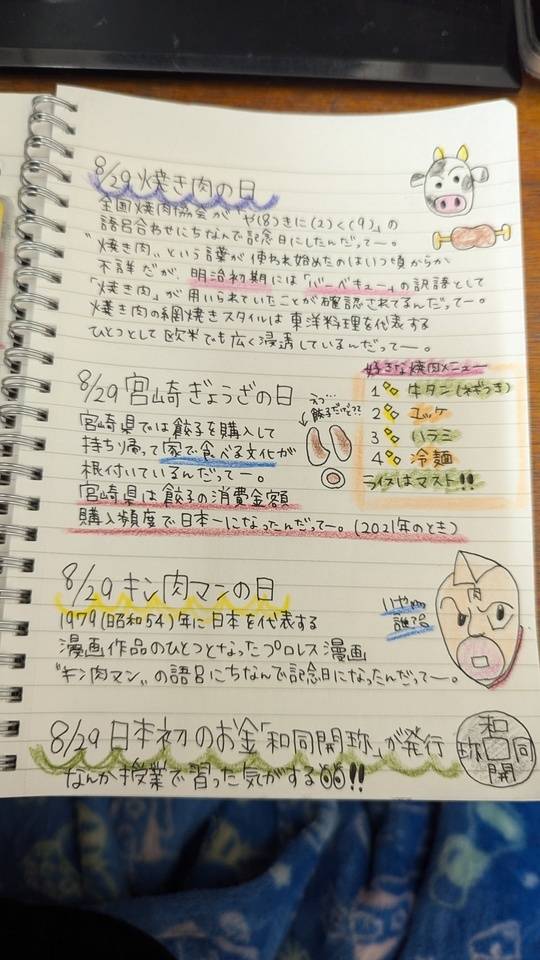 8/29 焼き肉の日
全国焼肉協会が「や(8)きに(2)く(9)」の
語呂合わせにちなんで記念日にしたんだってー。
"焼き肉"という言葉が使われ始めたのはいつ頃からか
不詳だが、明治初期には「バーベキュー」の訳語として
「焼き肉」が用いられていたことが確認されてるんだってー。
焼き肉の網焼きスタイルは東洋料理を代表する
ひとつとして欧米でも広く浸透しているんだってー。
好きな焼肉メニュー
1 牛タン(ネギつき)
2 ユッケ
3 ハラミ
4 冷麺
ライスはマスト!!
8/29 宮崎ぎょうざの日
宮崎県では餃子を購入して
持ち帰って家で食べる文化が
根付いているんだってー。
宮崎県は餃子の消費金額
購入頻度で日本一になったんだってー。(2021年のとき)
えっ…
餃子だだ??
8/29 キン肉マンの日
1979(昭和54)年に日本を代表する
漫画作品のひとつとなったプロレス漫画
"キン肉マン"の語呂にちなんで記念日になったんだってー。
いやm
誰てる
肉
8/29 日本初のお金「和同開珎」が発行
なんか授業で習った気がする!!
和
同
開
珎